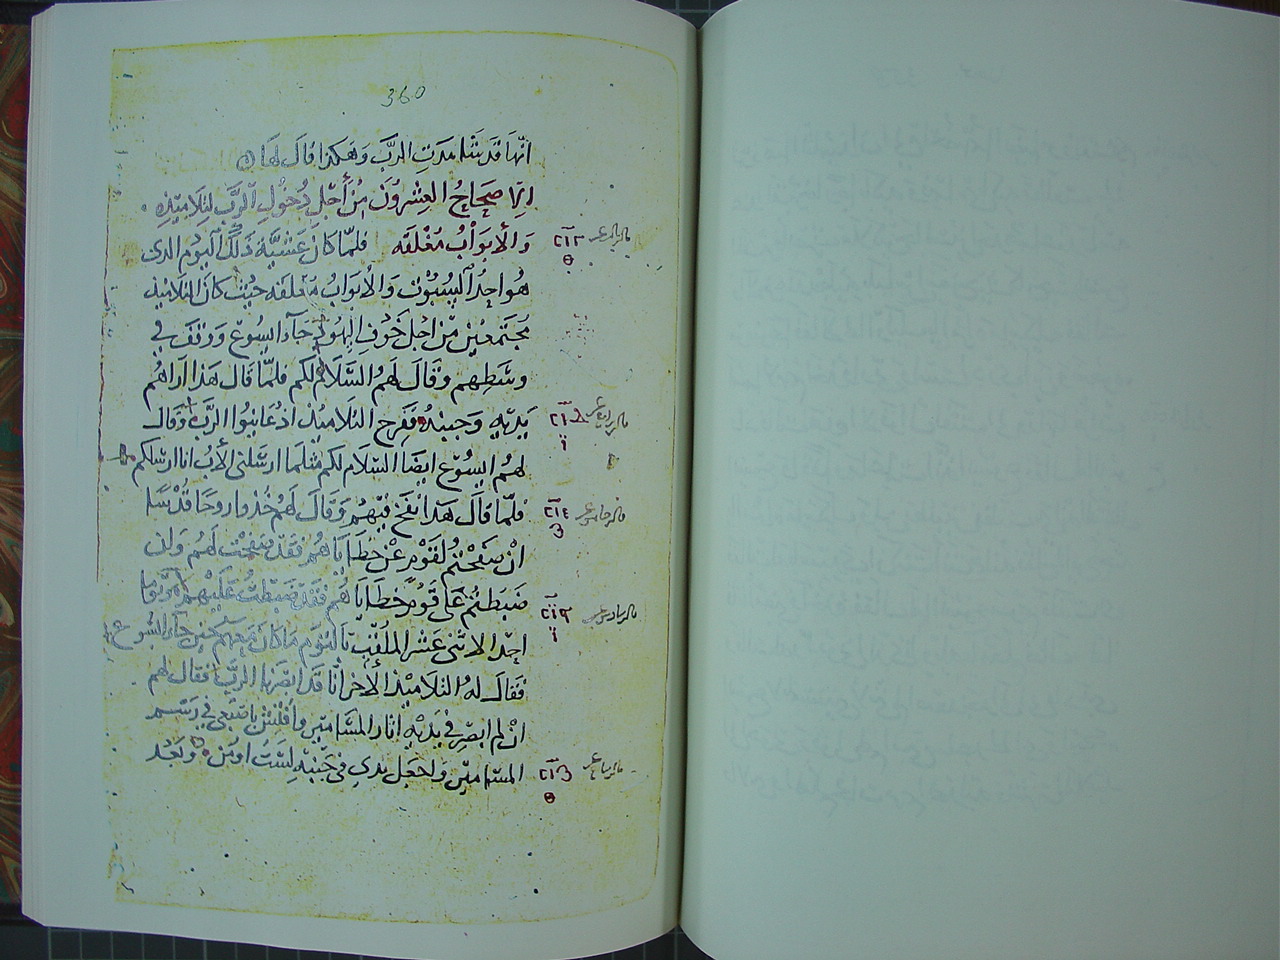 360
انها قد شاهدت الرب وهكذا قال لها
الاصحاح العشرون من أجل دخول الرب لتلاميذه
والأبواب مغلقه فلما كان عشية ذلك اليوم الذى
هو احد السبوت والأبواب مغلقه حيث كان التلاميذ
مجتمعين من اجل خوف اليهود جاء اليسوع ووقف في
وسطهم وقال لهم السلام لكم فلما قال هذا اراهم
يديه وجنبه ففرح التلاميذ اذ عاينوا الرب وقال
لهم اليسوع ايضا السلام لكم مثلما ارسلنى الأب انا ارسلكم
فلما قال هذا نفخ فيهم وقال لهم خذوا روحا قدسا
ان صفحتم لقوم عن خطاياهم فقد صفحت لهم وان
ضبطتم على قوم خطاياهم فقد ضبطت عليهم وتوما
احد الاثنى عشر الملقب بالتوم ما كان معهم حين جاء اليسوع
فقال له التلاميذ الأخر انا قد ابصرنا الرب فقال لهم
ان لم ابصر في يديه اثار المسامير وأفتش باصبعى في رسم
المسامير واجعل يدي في جنبه لست اومن وبعد